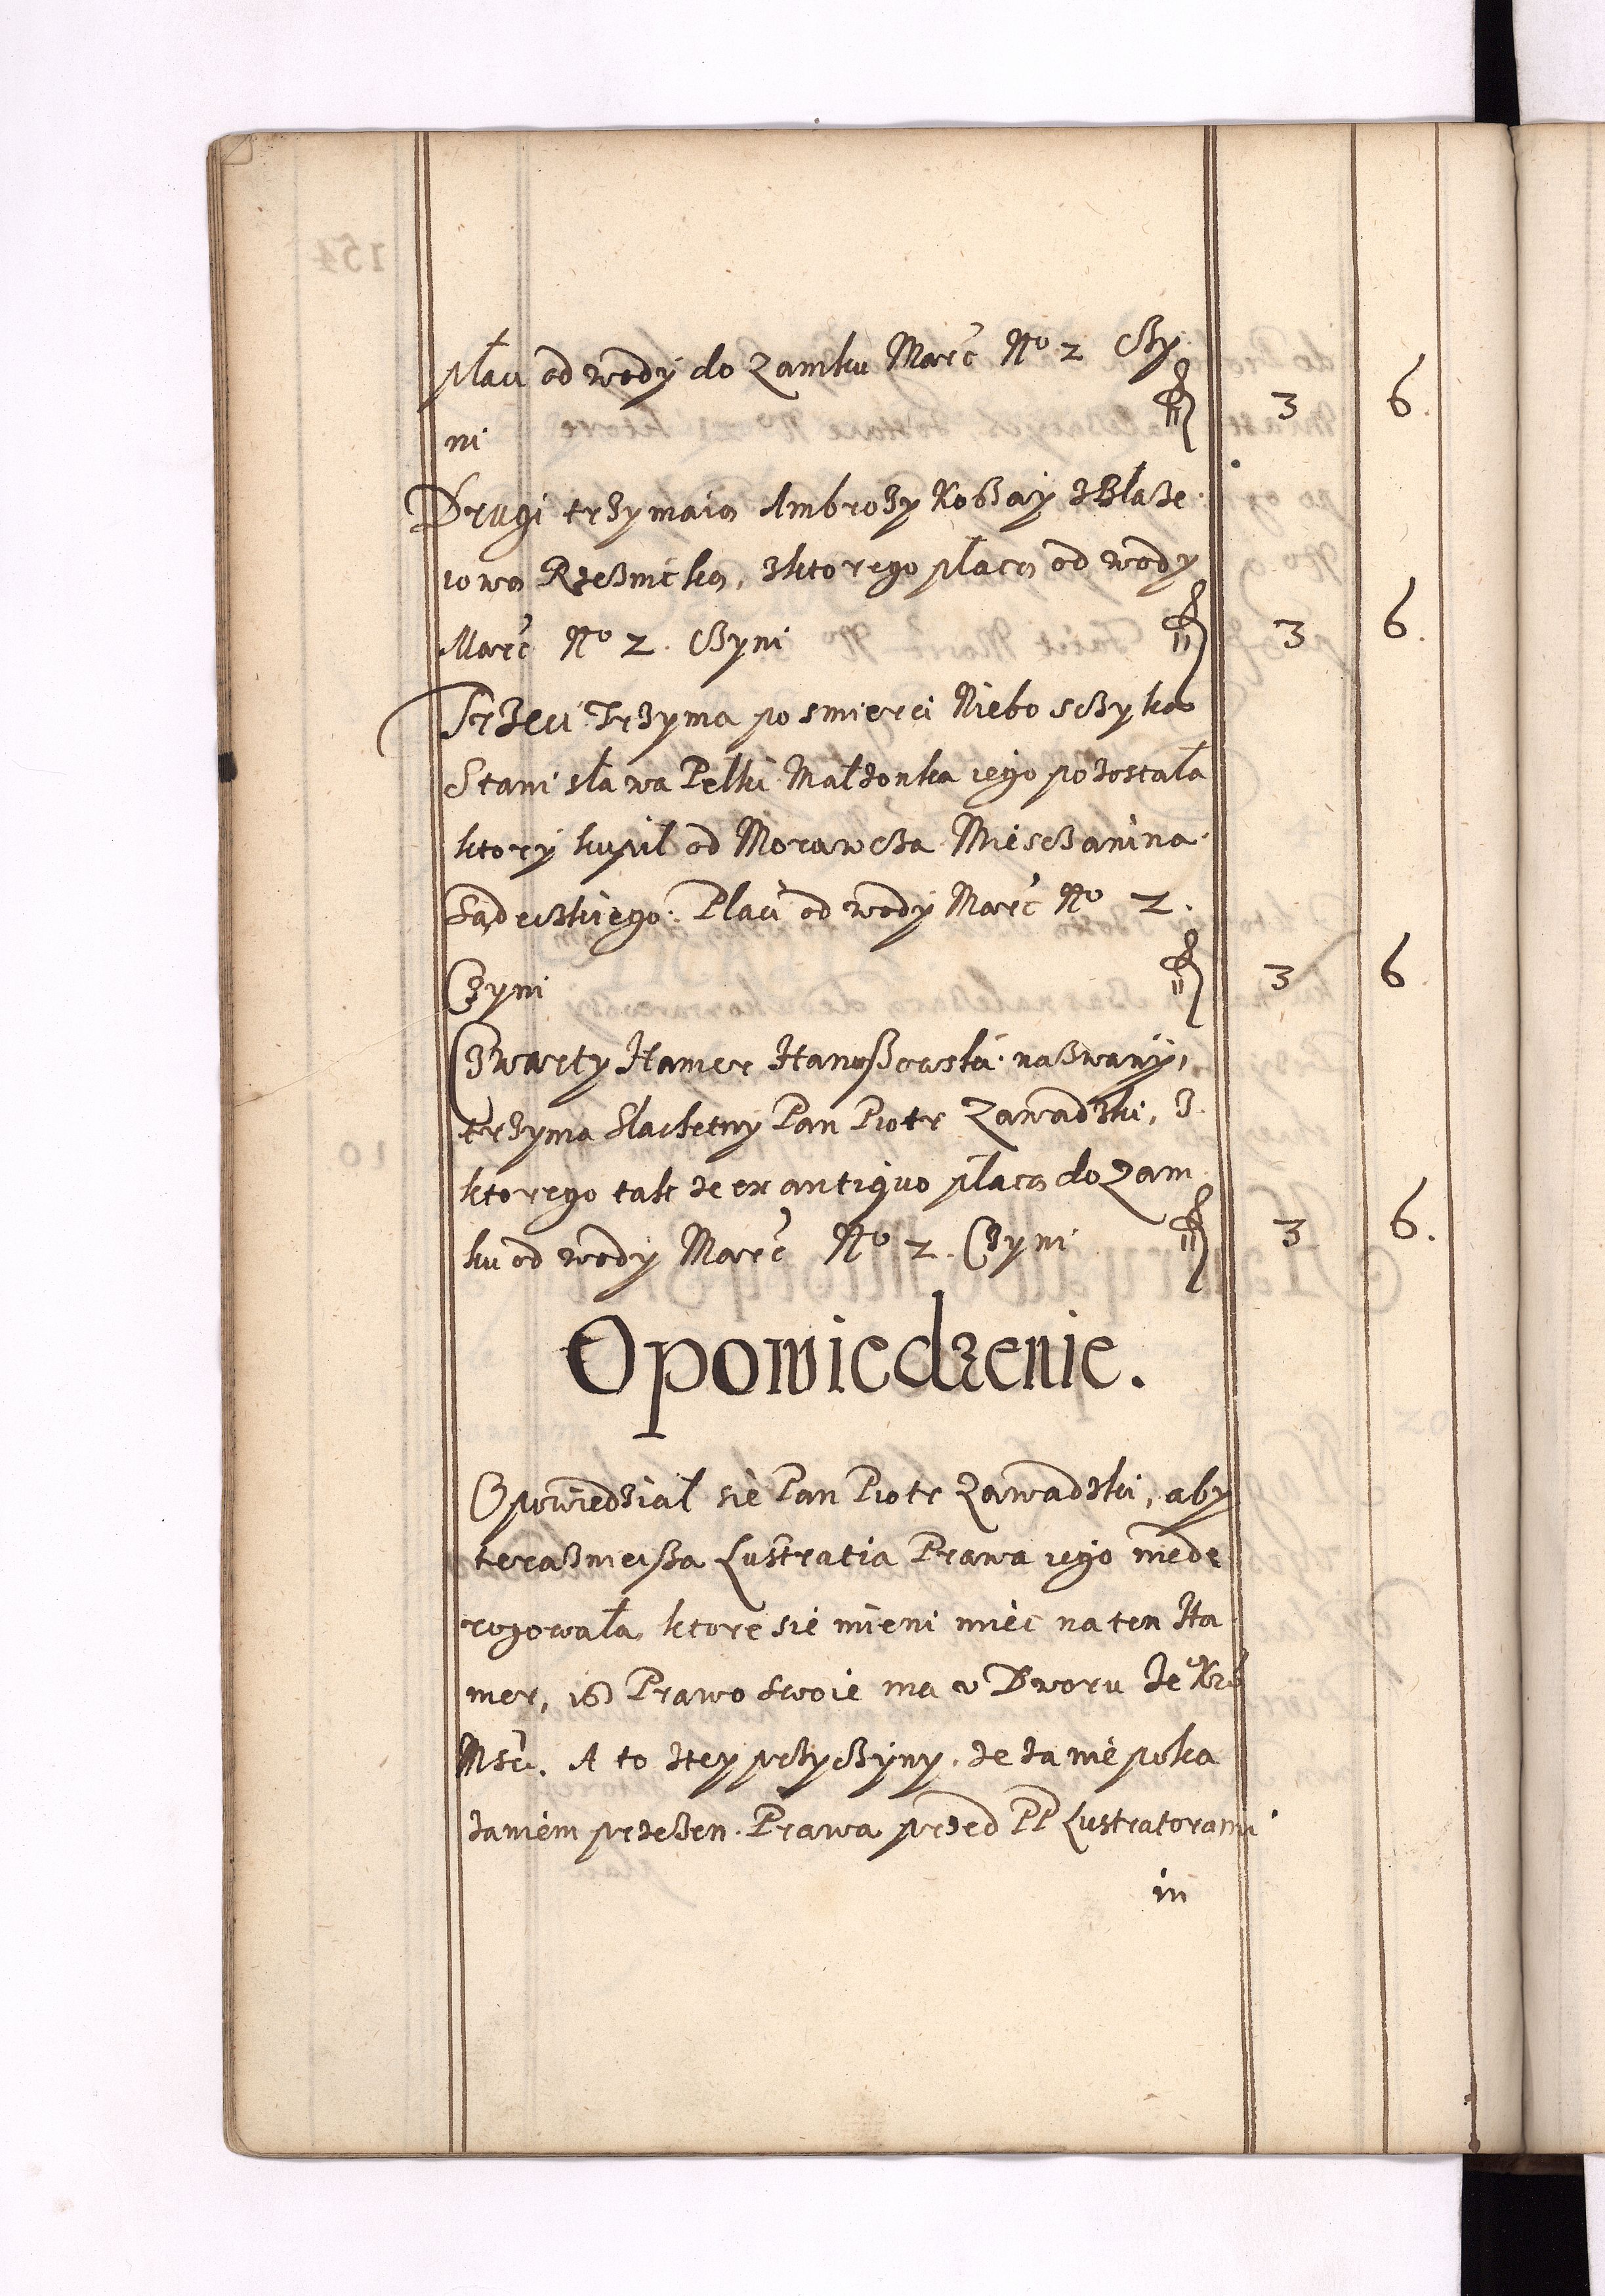 płaci od wody do Zamku Marć No 2 Czy
ni fl 3 6.
Drugi trzymaią Ambrozy Kobzay z Błaze
iową Rzeznicką, z ktorego płacą od wody
Marć No 2. Czyni fl 3 6.
Trzeci Trzyma po smierci Niebosczyka
Stanisława Pełki Małzonka iego pozostała
ktory kupił od Morawcza Miesczanina
Sądeczkiego. Płaci od wody Marć No 2.
Czyni fl 3 6
Czwarty Hamer Hanuszowski nazwany,
trzyma Slachetny Pan Piotr Zawadzki, z
ktorego takze ex antiquo płacą do Zam
ku od wody Marć No 2. Czyni fl 3 6.
Opowiedzenie.
Opowiedział sie Pan Piotr Zawadzki, aby
teraznieisza Lustratia Prawa iego niede
rogowała, ktore sie mieni miec na ten Ha
mer, iż Prawo swoie ma v Dworu Je Kró
Msći. A to z tey przyczyny, ze za nie poka
zaniem przezen Prawa przed PP Lustratorami
in